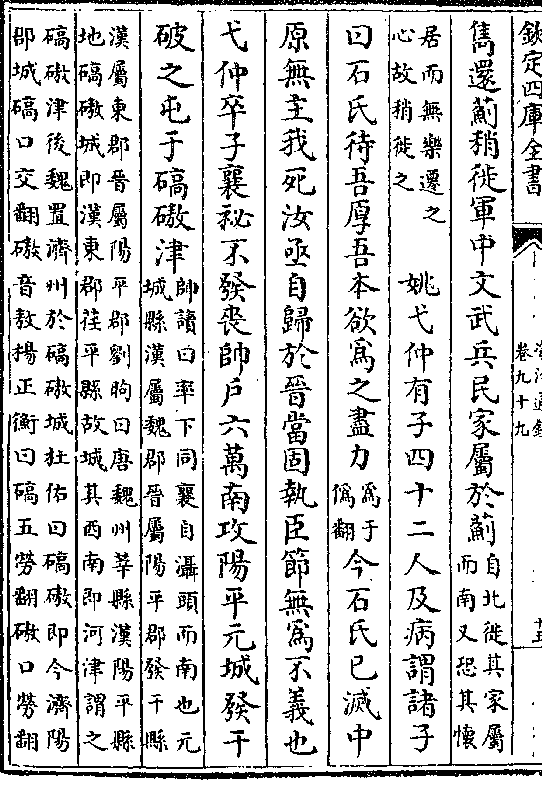 欽定四庫全書
卷九十九
雋還薊稍徙軍中文武兵民家屬於薊
自北徙其家屬
而南又恐其懷
居而無樂遷之
心故稍徙之
姚弋仲有子四十二人及病謂諸子
曰石氏待吾厚吾本欲爲之盡力
爲于
僞翻
今石氏已滅中
原無主我死汝亟自歸於晉當固執臣節無爲不義也
弋仲卒子襄祕不發喪帥戶六萬南攻陽平元城發干
破之屯于碻磝津
帥讀曰率下同襄自灄頭而南也元
城縣漢屬魏郡晉屬陽平郡發干縣
漢屬東郡晉屬陽平郡劉昫曰唐魏州莘縣漢陽平縣
地碻磝城即漢東郡茌平縣故城其西南即河津謂之
碻磝津後魏置濟州於碻磝城杜佑曰碻磝即今濟陽
郡城碻口交翻磝音教揚正衡曰碻五勞翻磝口勞翻